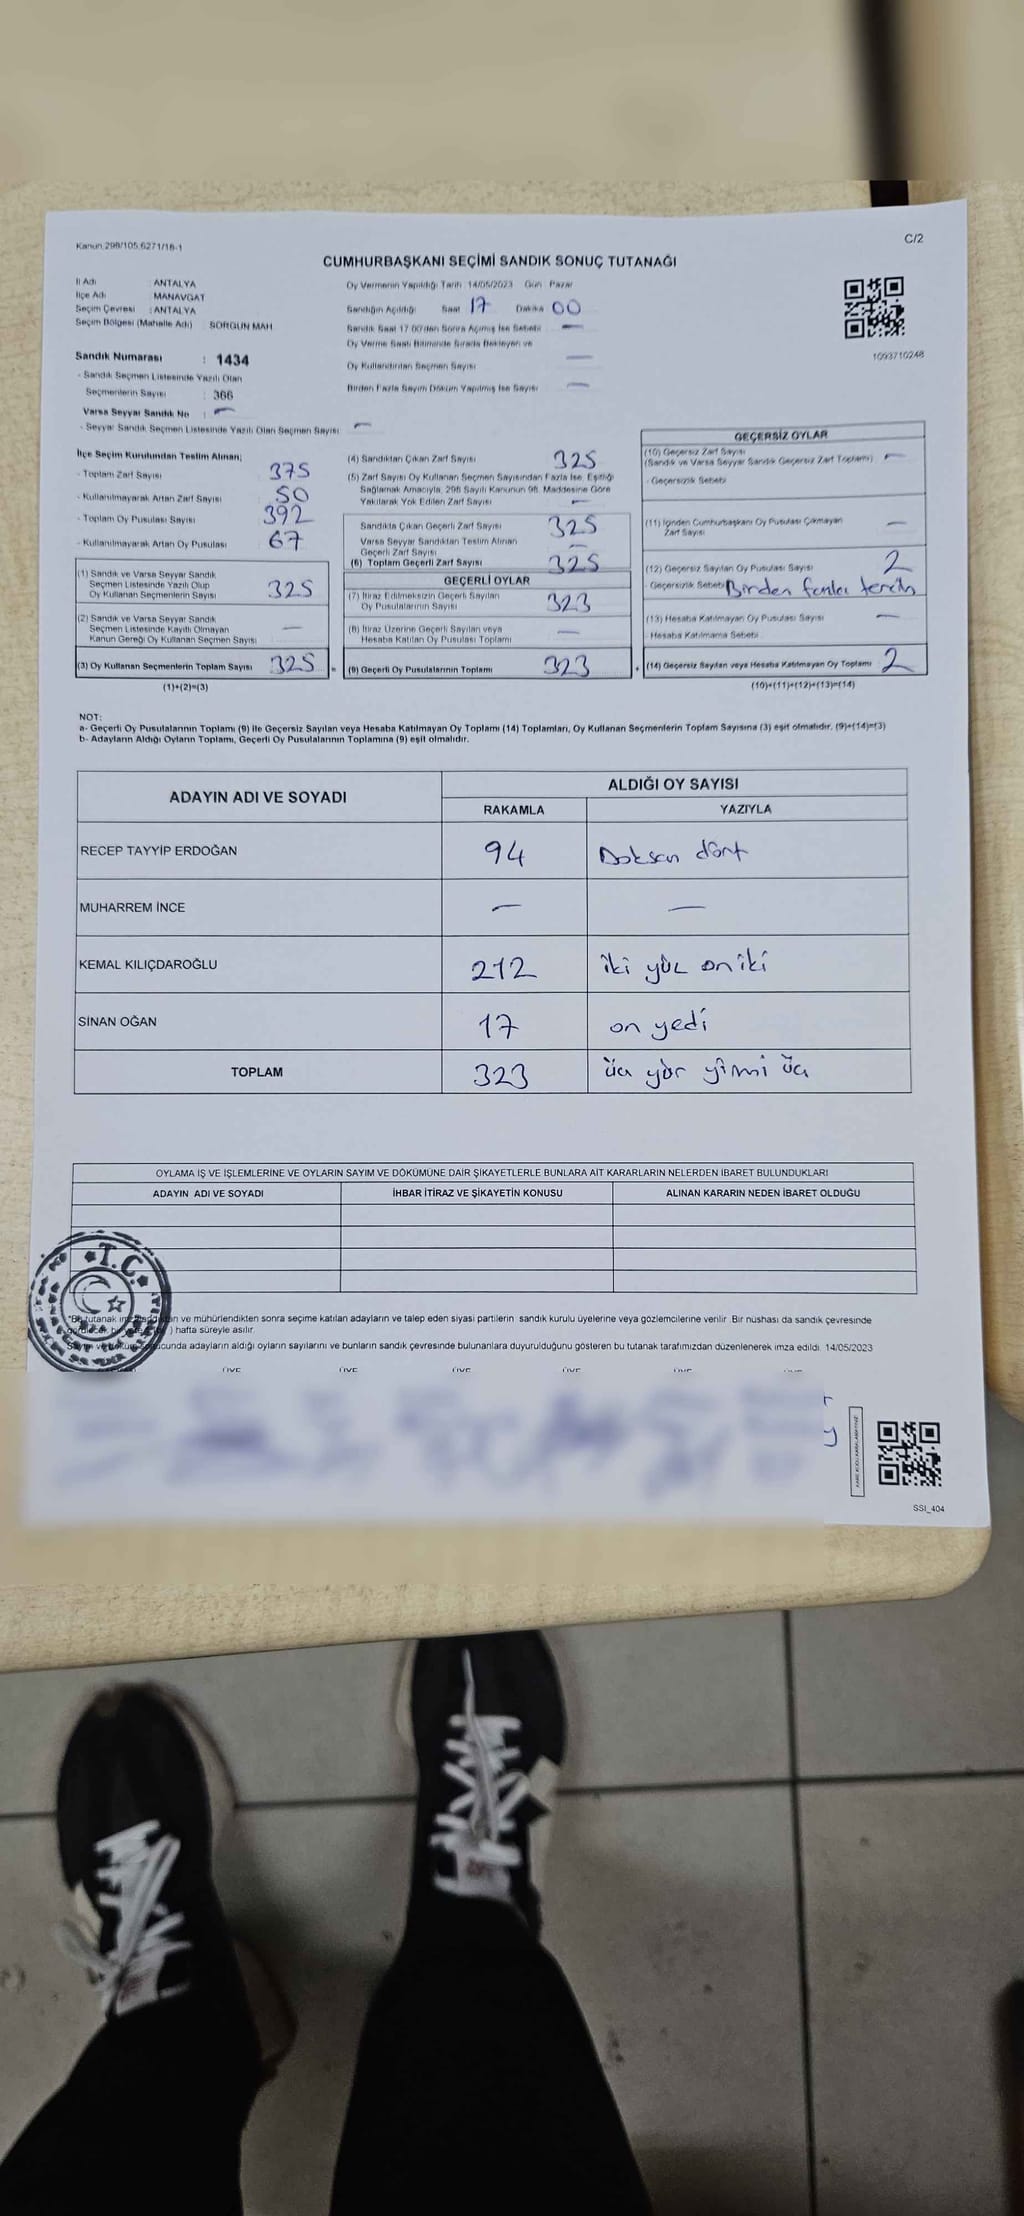 Kanun 298/105,6271/18-1
C/2
CUMHURBAŞKANI SEÇİMİ SANDIK SONUÇ TUTANAĞI
İl Adı : ANTALYA
İlçe Adı : MANAVGAT
Seçim Çevresi : ANTALYA
Seçim Bölgesi (Mahalle Adı) : SORGUN MAH.
Sandık Numarası : 1434
- Sandık Seçmen Listesinde Yazılı Olan
Seçmenlerin Sayısı : 366
Varsa Seyyar Sandık No : —
- Seyyar Sandık Seçmen Listesinde Yazılı Olan Seçmen Sayısı —
Oy Vermenin Yapıldığı Tarih : 14/05/2023 Gün : Pazar
Sandığın Açıldığı Saat 17 Dakika 00
Sandık Saat 17.00'den Sonra Açılmış İse Sebebi —
Oy Verme Saati Bitiminde Sırada Bekleyen ve
Oy Kullandırılan Seçmen Sayısı —
Birden Fazla Sayım Döküm Yapılmış İse Sayısı —
1093710248
İlçe Seçim Kurulundan Teslim Alınan;
- Toplam Zarf Sayısı 375
- Kullanılmayarak Artan Zarf Sayısı 50
- Toplam Oy Pusulası Sayısı 392
- Kullanılmayarak Artan Oy Pusulası 67
(1) Sandık ve Varsa Seyyar Sandık
Seçmen Listesinde Yazılı Olup
Oy Kullanan Seçmenlerin Sayısı 325
(2) Sandık ve Varsa Seyyar Sandık
Seçmen Listesinde Kayıtlı Olmayan
Kanun Gereği Oy Kullanan Seçmen Sayısı —
(3) Oy Kullanan Seçmenlerin Toplam Sayısı 325
(1)+(2)=(3)
=
(4) Sandıktan Çıkan Zarf Sayısı 325
(5) Zarf Sayısı Oy Kullanan Seçmen Sayısından Fazla İse, Eşitliği
Sağlamak Amacıyla, 298 Sayılı Kanunun 98. Maddesine Göre
Yakılarak Yok Edilen Zarf Sayısı —
Sandıkta Çıkan Geçerli Zarf Sayısı 325
Varsa Seyyar Sandıktan Teslim Alınan
Geçerli Zarf Sayısı —
(6) Toplam Geçerli Zarf Sayısı 325
GEÇERLİ OYLAR
(7) İtiraz Edilmeksizin Geçerli Sayılan
Oy Pusulalarının Sayısı 323
(8) İtiraz Üzerine Geçerli Sayılan veya
Hesaba Katılan Oy Pusulası Toplamı —
(9) Geçerli Oy Pusulalarının Toplamı 323
+
GEÇERSİZ OYLAR
(10) Geçersiz Zarf Sayısı
(Sandık ve Varsa Seyyar Sandık Geçersiz Zarf Toplamı) —
- Geçersizlik Sebebi
(11) İçinden Cumhurbaşkanı Oy Pusulası Çıkmayan
Zarf Sayısı —
(12) Geçersiz Sayılan Oy Pusulası Sayısı 2
- Geçersizlik Sebebi Birden fazla tercih
(13) Hesaba Katılmayan Oy Pusulası Sayısı —
- Hesaba Katılmama Sebebi
(14) Geçersiz Sayılan veya Hesaba Katılmayan Oy Toplamı 2
(10)+(11)+(12)+(13)=(14)
NOT:
a- Geçerli Oy Pusulalarının Toplamı (9) ile Geçersiz Sayılan veya Hesaba Katılmayan Oy Toplamı (14) Toplamları, Oy Kullanan Seçmenlerin Toplam Sayısına (3) eşit olmalıdır. (9)+(14)=(3)
b- Adayların Aldığı Oyların Toplamı, Geçerli Oy Pusulalarının Toplamına (9) eşit olmalıdır.
ADAYIN ADI VE SOYADI
ALDIĞI OY SAYISI
RAKAMLA YAZIYLA
RECEP TAYYİP ERDOĞAN 94 Doksan dört
MUHARREM İNCE — —
KEMAL KILIÇDAROĞLU 212 iki yüz oniki
SİNAN OĞAN 17 on yedi
TOPLAM 323 üç yüz yirmi üç
OYLAMA İŞ VE İŞLEMLERİNE VE OYLARIN SAYIM VE DÖKÜMÜNE DAİR ŞİKAYETLERLE BUNLARA AİT KARARLARIN NELERDEN İBARET BULUNDUKLARI
ADAYIN ADI VE SOYADI İHBAR İTİRAZ VE ŞİKAYETİN KONUSU ALINAN KARARIN NEDEN İBARET OLDUĞU
T.C.
*Bu tutanak ve mühürlendikten sonra seçime katılan adayların ve talep eden siyasi partilerin sandık kurulu üyelerine veya gözlemcilerine verilir. Bir nüshası da sandık çevresinde
) hafta süreyle asılır.
Sayım ve döküm sonucunda adayların aldığı oyların sayılarını ve bunların sandık çevresinde bulunanlara duyurulduğunu gösteren bu tutanak tarafımızdan düzenlenerek imza edildi. 14/05/2023
ÜYE ÜYE ÜYE ÜYE ÜYE
SSI_404